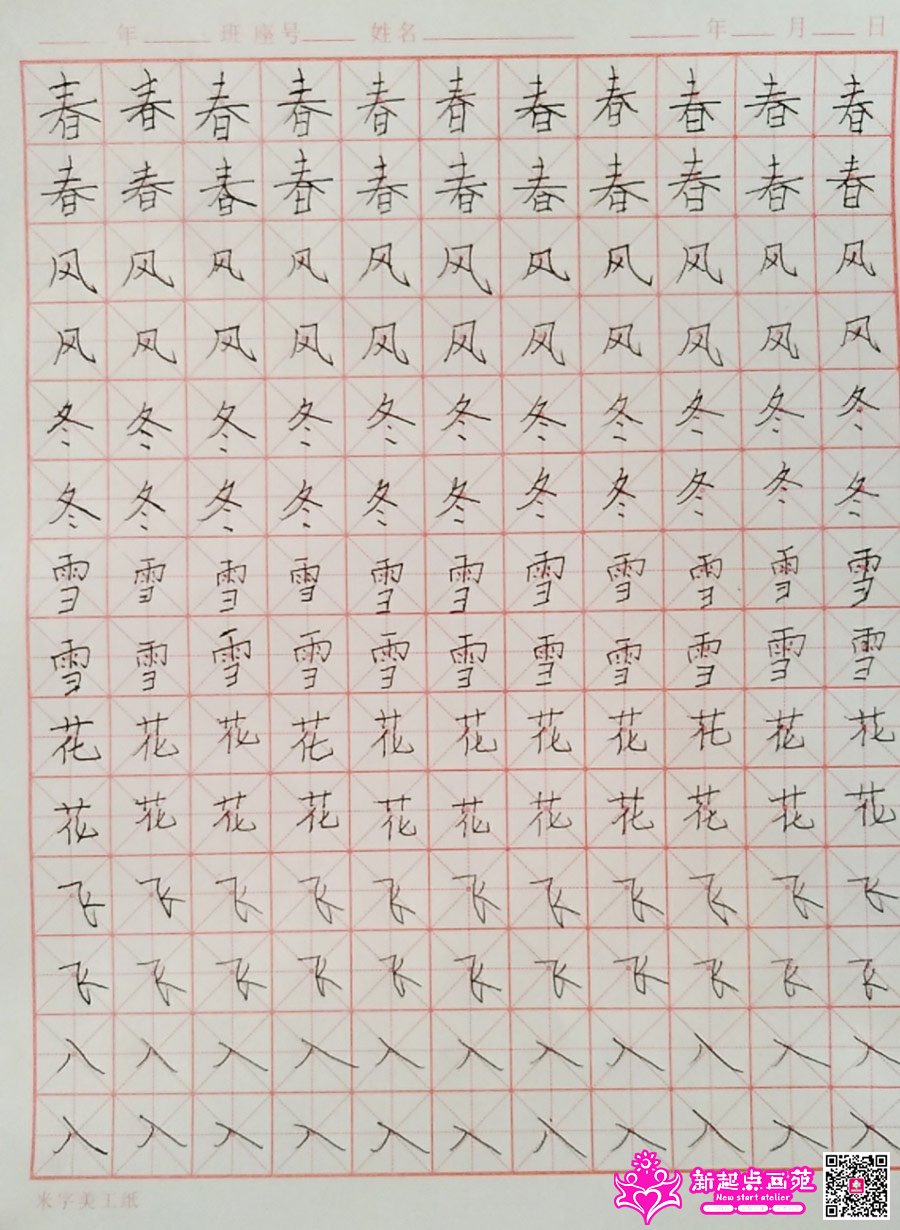 年 班 座号 姓名 年 月 日
春春春春春春春春春春春
春春春春春春春春春春春
风风风风风风风风风风风
风风风风风风风风风风风
冬冬冬冬冬冬冬冬冬冬冬
冬冬冬冬冬冬冬冬冬冬冬
雪雪雪雪雪雪雪雪雪雪雪
雪雪雪雪雪雪雪雪雪雪雪
花花花花花花花花花花花
花花花花花花花花花花花
飞飞飞飞飞飞飞飞飞飞飞
飞飞飞飞飞飞飞飞飞飞飞
入入入入入入入入入入入
入入入入入入入入入入入
米字美工纸
新起点画苑
New start atelier